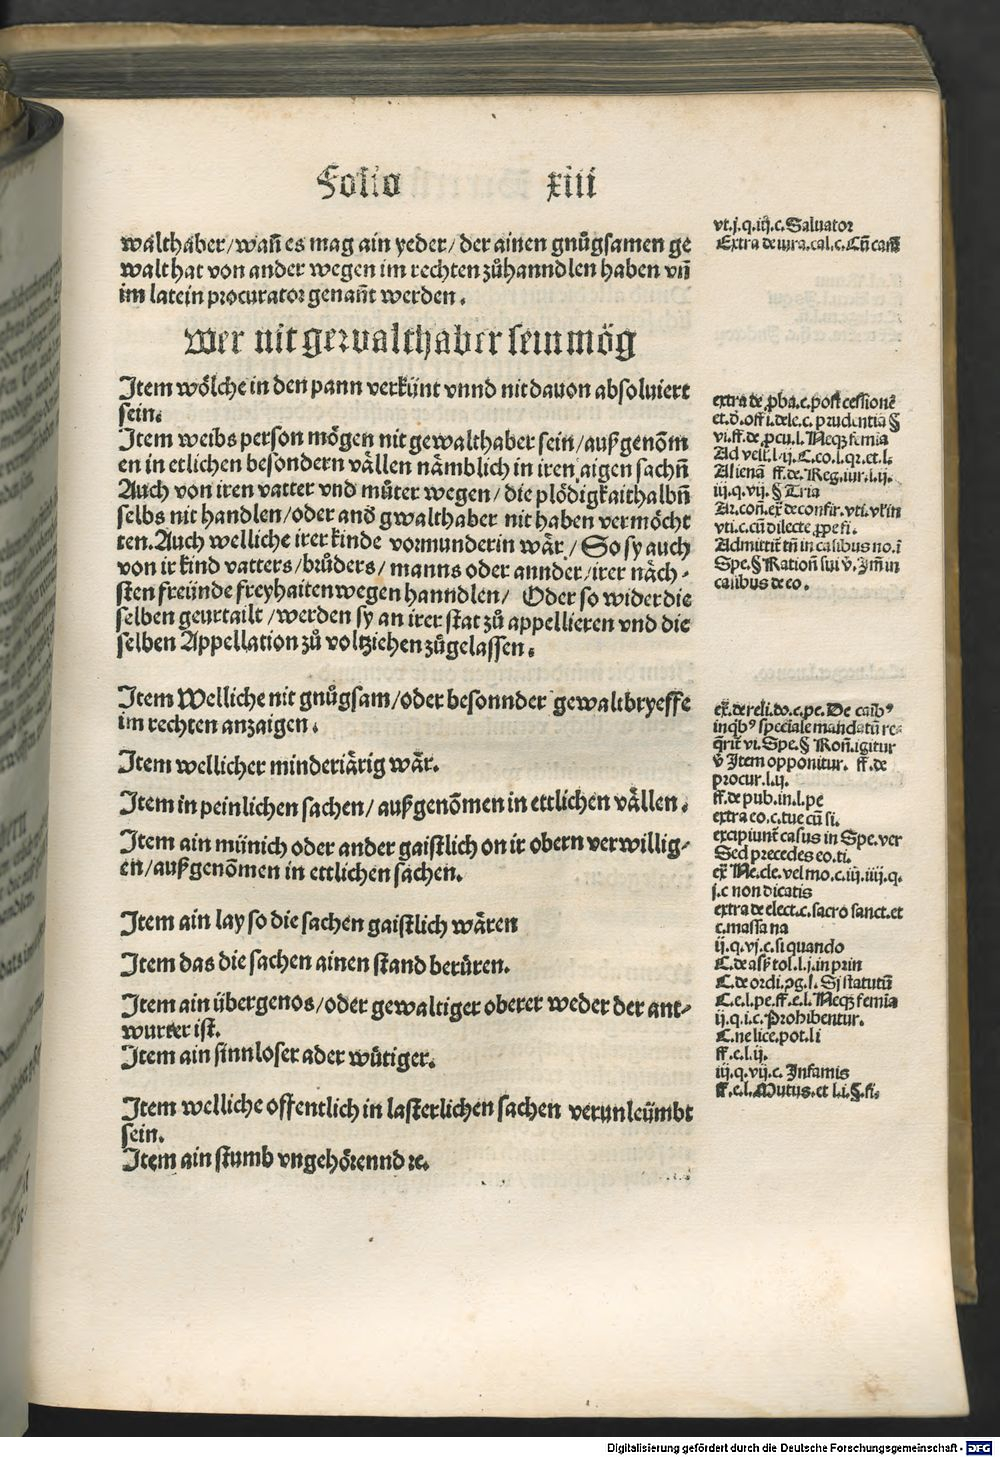 Folio xiii
walthaber/wañ es mag ain yeder/ der ainen gnůgsamen ge
walt hat von ander wegen im rechten zůhanndlen haben vñ
im latein procurator genañt werden.
Wer nit gewalthaber sein mög
Item wölche in den pann verkünt vnnd nit dauon absoluiert
sein.
Item weibs person mögen nit gewalthaber sein/außgenõm
en in etlichen besondern vällen nämblich in iren aigen sachñ
Auch von iren vatter vnd můter wegen/ die plödigkaithalbñ
selbs nit handlen/oder and̄ gwalthaber nit haben vermöcht
ten. Auch welliche irer kinde vormunderin wär/ So sy auch
von ir kind vatters/brůders/ manns oder annder/irer näch-
sten freünde freyhaiten wegen hanndlen/ Oder so wider die
selben geurtailt/werden sy an irer stat zů appellieren vnd die
selben Appellation zů voltziehen zůgelassen.
Item Welliche nit gnůgsam/oder besonnder gewaltbryeffe
im rechten anzaigen.
Item wellicher minderiärig wär.
Item in peinlichen sachen/ außgenõmen in ettlichen vällen.
Item ain münich oder ander gaistlich on ir obern verwillig-
en/außgenõmen in ettlichen sachen.
Item ain lay so die sachen gaistlich wären
Item das die sachen ainen stand berüren.
Item ain übergenos/oder gewaltiger oberer weder der ant-
wurter ist.
Item ain sinnloser ader wütiger.
Item welliche offentlich in lasterlichen sachen verunleümbt
sein.
Item ain stumb vngehörennd ꝛc.
vt.j.q.iij.c. Saluator
Extra de iura.cal.c. Cũ cauß
extra de ꝓba.c. post cessionẽ
et.d̄.offi.dele.c. prudentiã §
vi.ff.de ꝓcu.l. Neqꝫ femia
Ad vell.l.ij. C.co.l.qꝛ.et.l.
Alienã ff.de. Reg.iur.l.ij.
iij.q.vij. § Tria
Ar.coñ.ex̄ de confir.vti.vl'in
vti.c.cũ dilecte ꝓpe fi.
Admittit̃ tñ in casibus no.ĩ
Spe. § Ration̄ sui v̄. Jm̄ in
casibus de co.
ex̄.de reli.do.c.pe. De casibꝰ
in qbꝰ speciale mandatũ re-
q̄rit̃ vi. Spe. § Roñ.igitur
v̄ Item opponitur. ff.de
procur.l.ij.
ff.de pub.in.l.pe
extra eo.c.tue cũ si.
excipiunt̃ casus in Spe.ver
Sed precedes eo.ti.
ex̄ Ne.cle.vel mo.c.iij.iiij.q.
j.c non dicatis
extra de elect.c.sacro sanct.et
c.massa na
ij.q.vj.c.si quando
C.de asp̃ tol.l.j.in prin
C.de ordi.ꝓg.l. Si statutũ
C.e.l.pe.ff.e.l. Neqꝫ femia
ij.q.i.c. Prohibentur.
C.ne lice.pot.li
ff.e.l.ij.
iij.q.vij.c. Infamis
ff.e.l. Mutus.et l.i.§.fi.
Digitalisierung gefördert durch die Deutsche Forschungsgemeinschaft - DFG